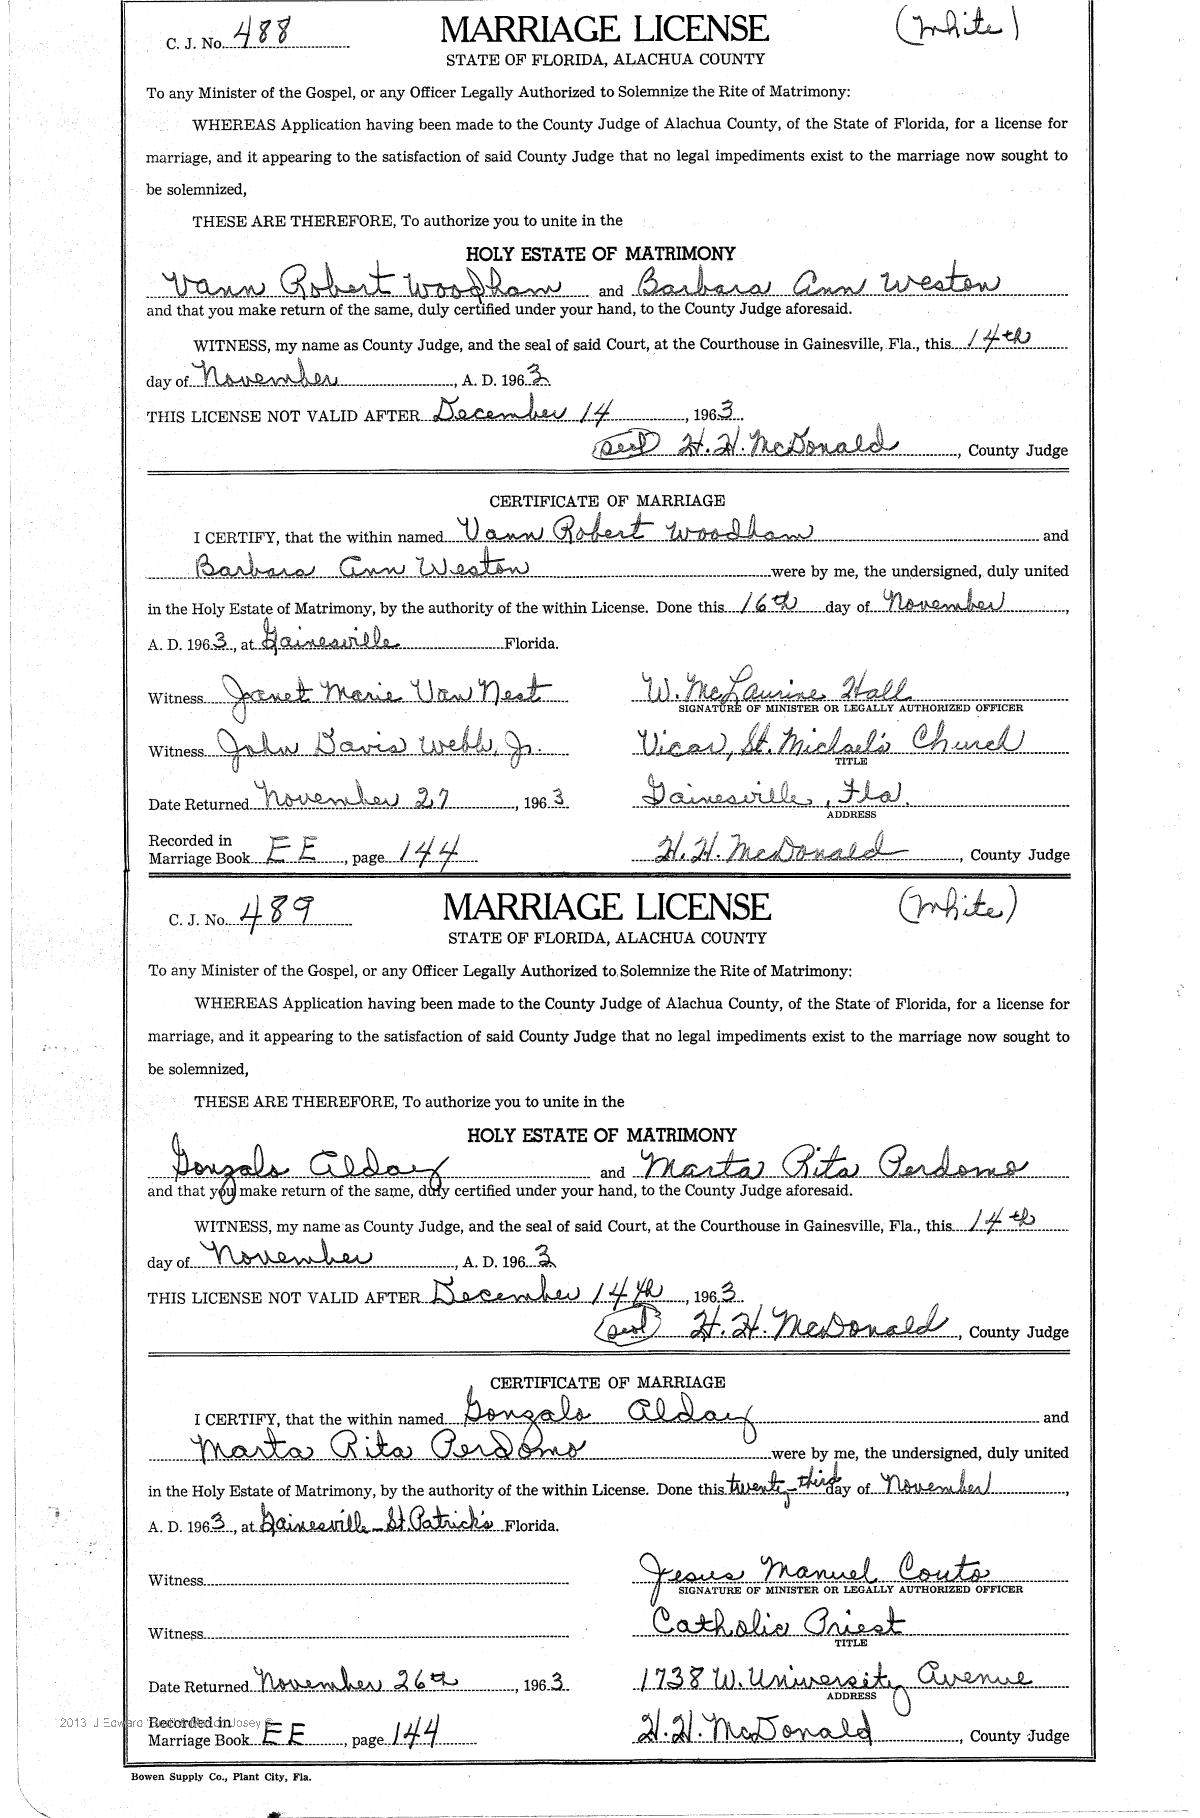 C. J. No. 488 MARRIAGE LICENSE (White)
STATE OF FLORIDA, ALACHUA COUNTY
To any Minister of the Gospel, or any Officer Legally Authorized to Solemnize the Rite of Matrimony:
WHEREAS Application having been made to the County Judge of Alachua County, of the State of Florida, for a license for
marriage, and it appearing to the satisfaction of said County Judge that no legal impediments exist to the marriage now sought to
be solemnized,
THESE ARE THEREFORE, To authorize you to unite in the
HOLY ESTATE OF MATRIMONY
Vann Robert Woodham and Barbara Ann Weston
and that you make return of the same, duly certified under your hand, to the County Judge aforesaid.
WITNESS, my name as County Judge, and the seal of said Court, at the Courthouse in Gainesville, Fla., this 14th
day of November, A. D. 1963
THIS LICENSE NOT VALID AFTER December 14, 1963
(seal) H. H. McDonald, County Judge
CERTIFICATE OF MARRIAGE
I CERTIFY, that the within named Vann Robert Woodham and
Barbara Ann Weston were by me, the undersigned, duly united
in the Holy Estate of Matrimony, by the authority of the within License. Done this 16th day of November,
A. D. 1963, at Gainesville Florida.
Witness Janet Marie Van Nest W. McLaurine Hall
SIGNATURE OF MINISTER OR LEGALLY AUTHORIZED OFFICER
Witness John Davis Webb, Jr. Vicar, St. Michael's Church
TITLE
Date Returned November 27, 1963 Gainesville, Fla.
ADDRESS
Recorded in
Marriage Book EE, page 144 H. H. McDonald, County Judge
C. J. No. 489 MARRIAGE LICENSE (White)
STATE OF FLORIDA, ALACHUA COUNTY
To any Minister of the Gospel, or any Officer Legally Authorized to Solemnize the Rite of Matrimony:
WHEREAS Application having been made to the County Judge of Alachua County, of the State of Florida, for a license for
marriage, and it appearing to the satisfaction of said County Judge that no legal impediments exist to the marriage now sought to
be solemnized,
THESE ARE THEREFORE, To authorize you to unite in the
HOLY ESTATE OF MATRIMONY
Gonzalo Alday and Marta Rita Perdomo
and that you make return of the same, duly certified under your hand, to the County Judge aforesaid.
WITNESS, my name as County Judge, and the seal of said Court, at the Courthouse in Gainesville, Fla., this 14th
day of November, A. D. 1963
THIS LICENSE NOT VALID AFTER December 14th, 1963
(seal) H. H. McDonald, County Judge
CERTIFICATE OF MARRIAGE
I CERTIFY, that the within named Gonzalo Alday and
Marta Rita Perdomo were by me, the undersigned, duly united
in the Holy Estate of Matrimony, by the authority of the within License. Done this twenty-third day of November,
A. D. 1963, at Gainesville - St. Patrick's Florida.
Witness Jesus Manuel Couto
SIGNATURE OF MINISTER OR LEGALLY AUTHORIZED OFFICER
Witness Catholic Priest
TITLE
Date Returned November 26th, 1963 1738 W. University Avenue
ADDRESS
2013 J Edward Josey ©
Recorded in
Marriage Book EE, page 144 H. H. McDonald, County Judge
Bowen Supply Co., Plant City, Fla.